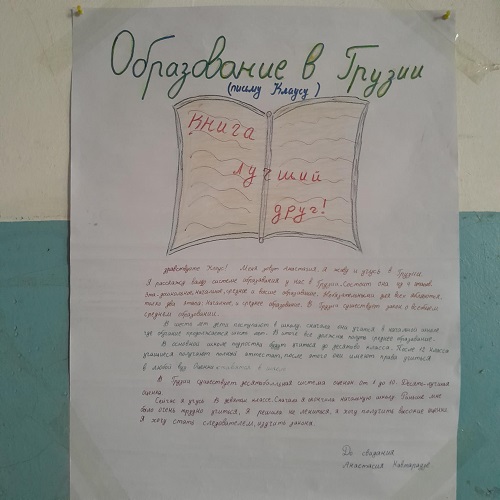 Образование в Грузии
(письму Клаусу)
Книга
лучший
друг!
здравствуйте Клаус! Меня зовут Анастасия, я живу и учусь в Грузии.
Я расскажу вашу систему образования у нас в Грузии. Состоит она из 4 этапов.
Это-дошкольное, начальное, среднее и высшее образование. Обязательными для всех являются,
только два этапа: начальное и среднее образование. В Грузии существует закон о всеобщем
среднем образовании.
В шесть лет дети поступают в школу. сначала они учатся в начальной школе
где обучение продолжается шесть лет. В итоге все должны получить среднее образование.
В основной школе подростки будут учиться до десятого класса. После 12 класса
учащиеся получают полный аттестат, после этого они имеют право учиться
в любой вуз
В Грузии существует десятибалльная система оценок от 1 до 10. Десять-лучшая
оценка.
Сейчас я учусь в девятом классе. Сначала я окончила начальную школу. Раньше мне
было очень трудно учиться. Я решила не лениться, я хочу получить высокие оценки.
Я хочу стать следователем, изучить законы.
До свидания
Анастасия